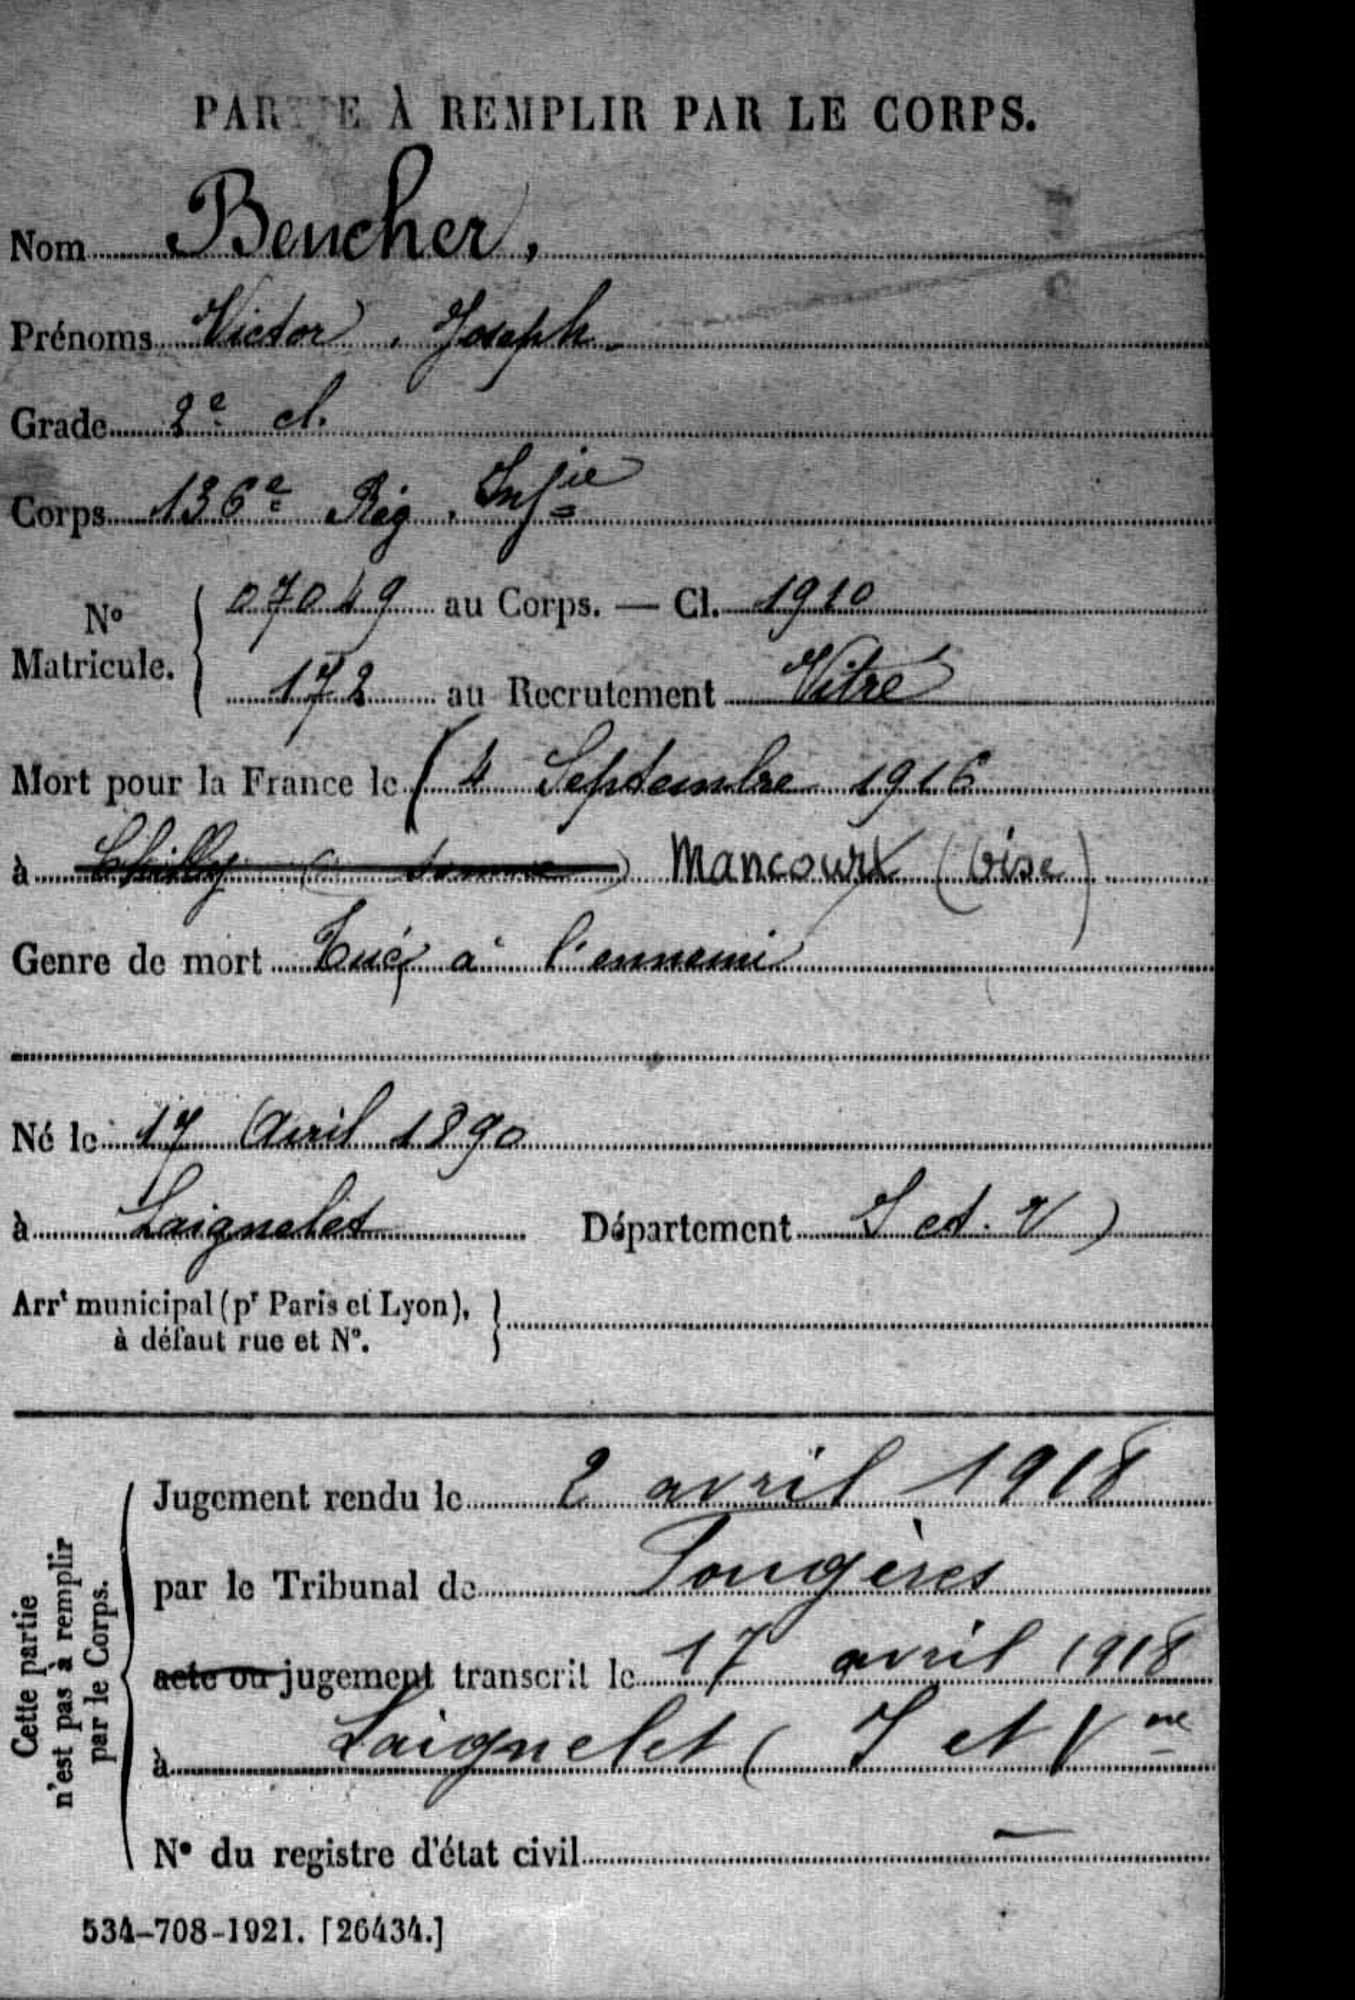 PARTIE À REMPLIR PAR LE CORPS.
Nom Beucher,
Prénoms Victor, Joseph
Grade 2e cl.
Corps 136e Rég. Infie
No Matricule. { 07049 au Corps. — Cl. 1910
172 au Recrutement Vitré
Mort pour la France le (4 Septembre 1916
à Chilly (Somme) Mancourt (Oise)
Genre de mort Tué à l'ennemi
Né le 17 Avril 1890
à Laignelet Département I et. V)
Arrt municipal (pr Paris et Lyon), à défaut rue et No. }
Cette partie n'est pas à remplir par le Corps.
Jugement rendu le 2 avril 1918
par le Tribunal de Fougères
acte ou jugement transcrit le 17 avril 1918
à Laignelet (I et Vne
No du registre d'état civil —
534-708-1921. [26434.]